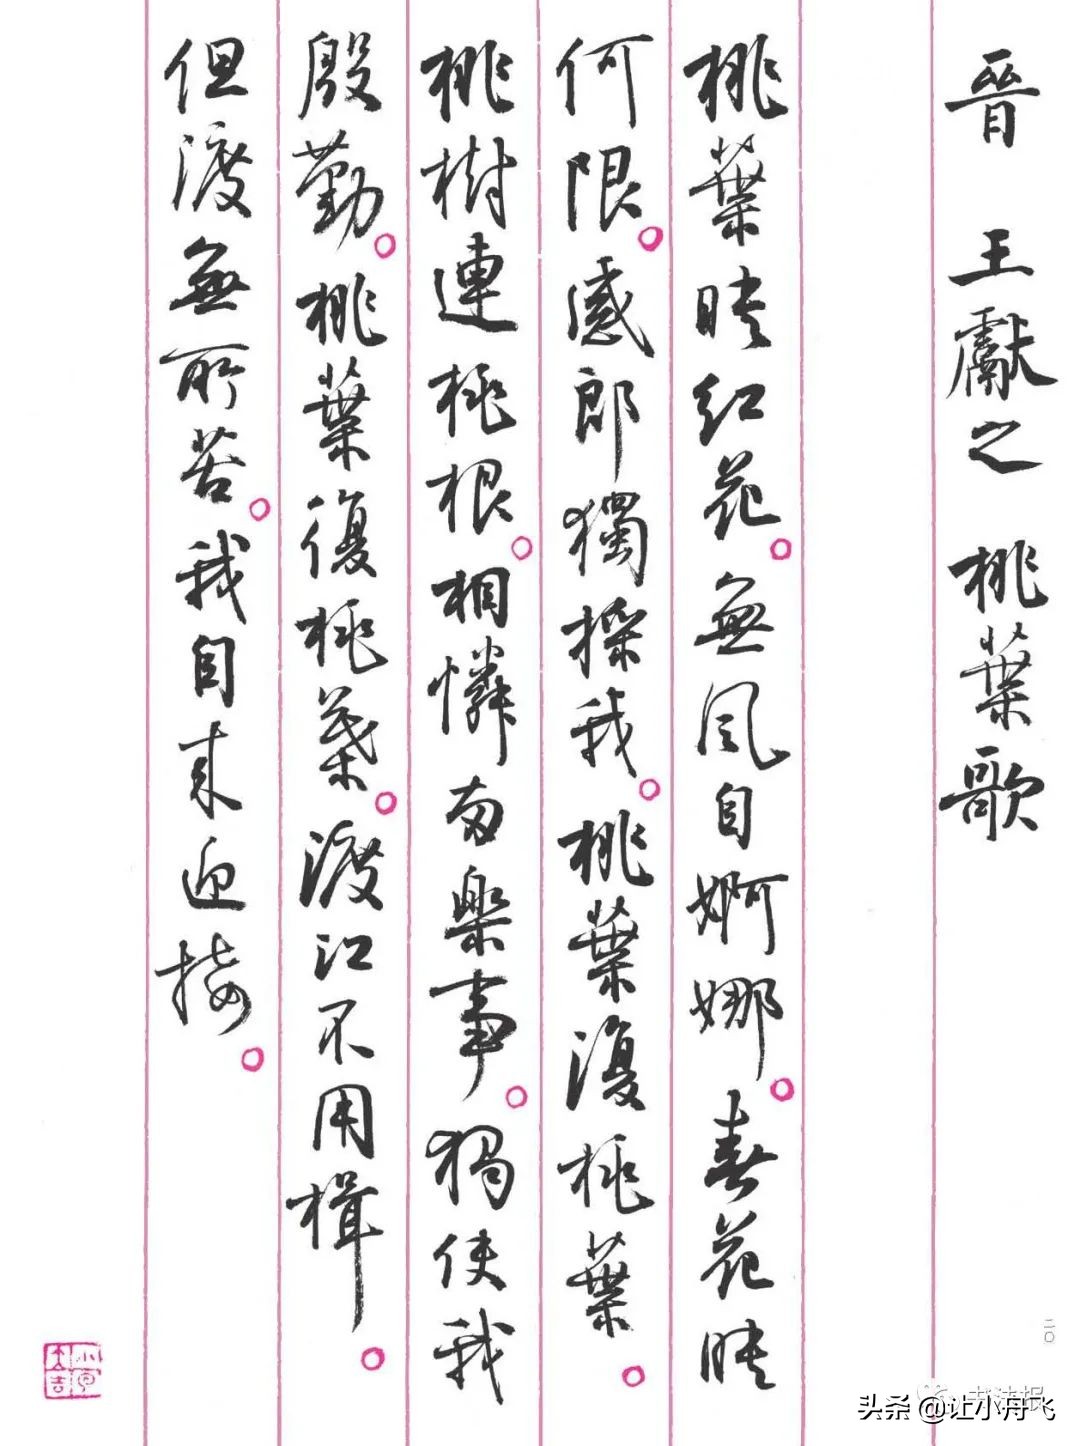 晉 王獻之 桃葉歌
桃葉映紅花。無風自婀娜。春花映
何限。感郎獨採我。桃葉復桃葉。
桃樹連桃根。相憐兩樂事。獨使我
殷勤。桃葉復桃葉。渡江不用楫。
但渡無所苦。我自來迎接。
二〇
书法报
头条 @让小丹飞